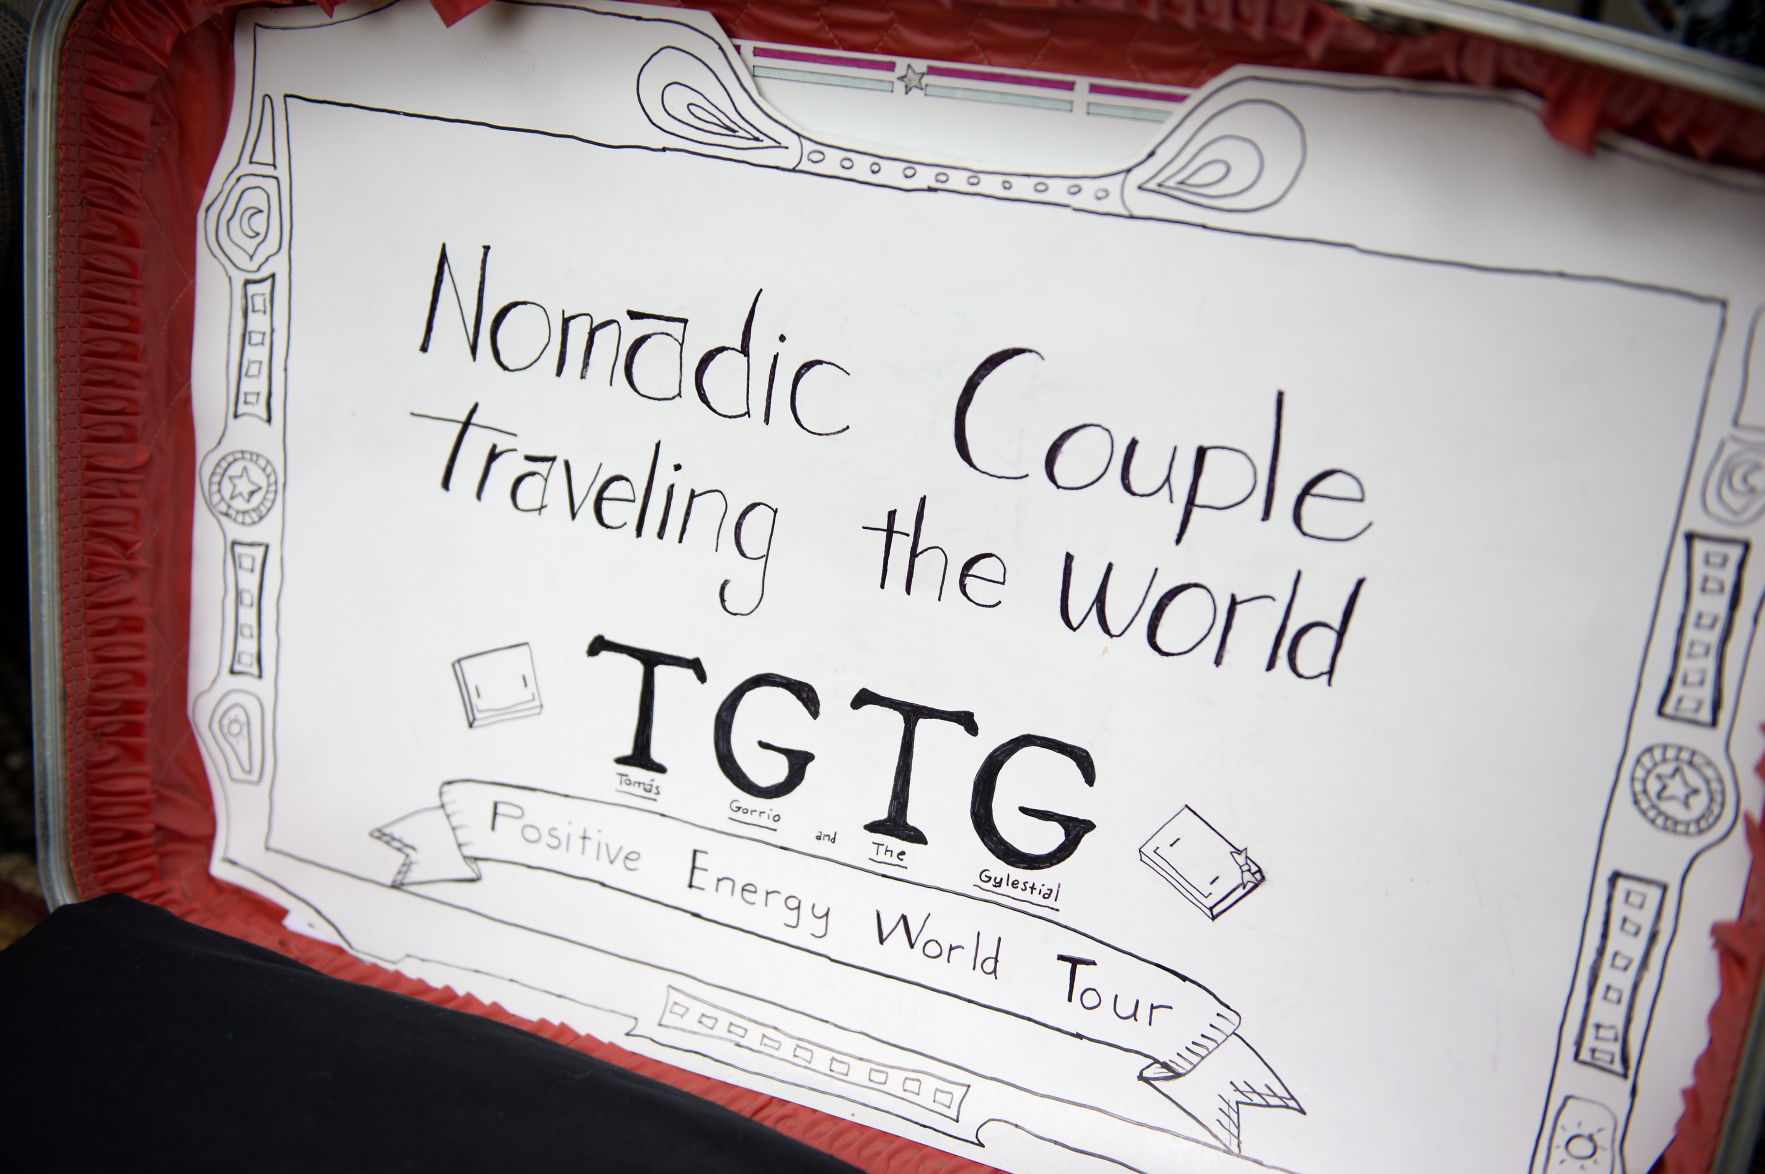 Nomadic Couple
traveling the world
TGTG
Tomás Gorrio and The Gylestial
Positive Energy World Tour